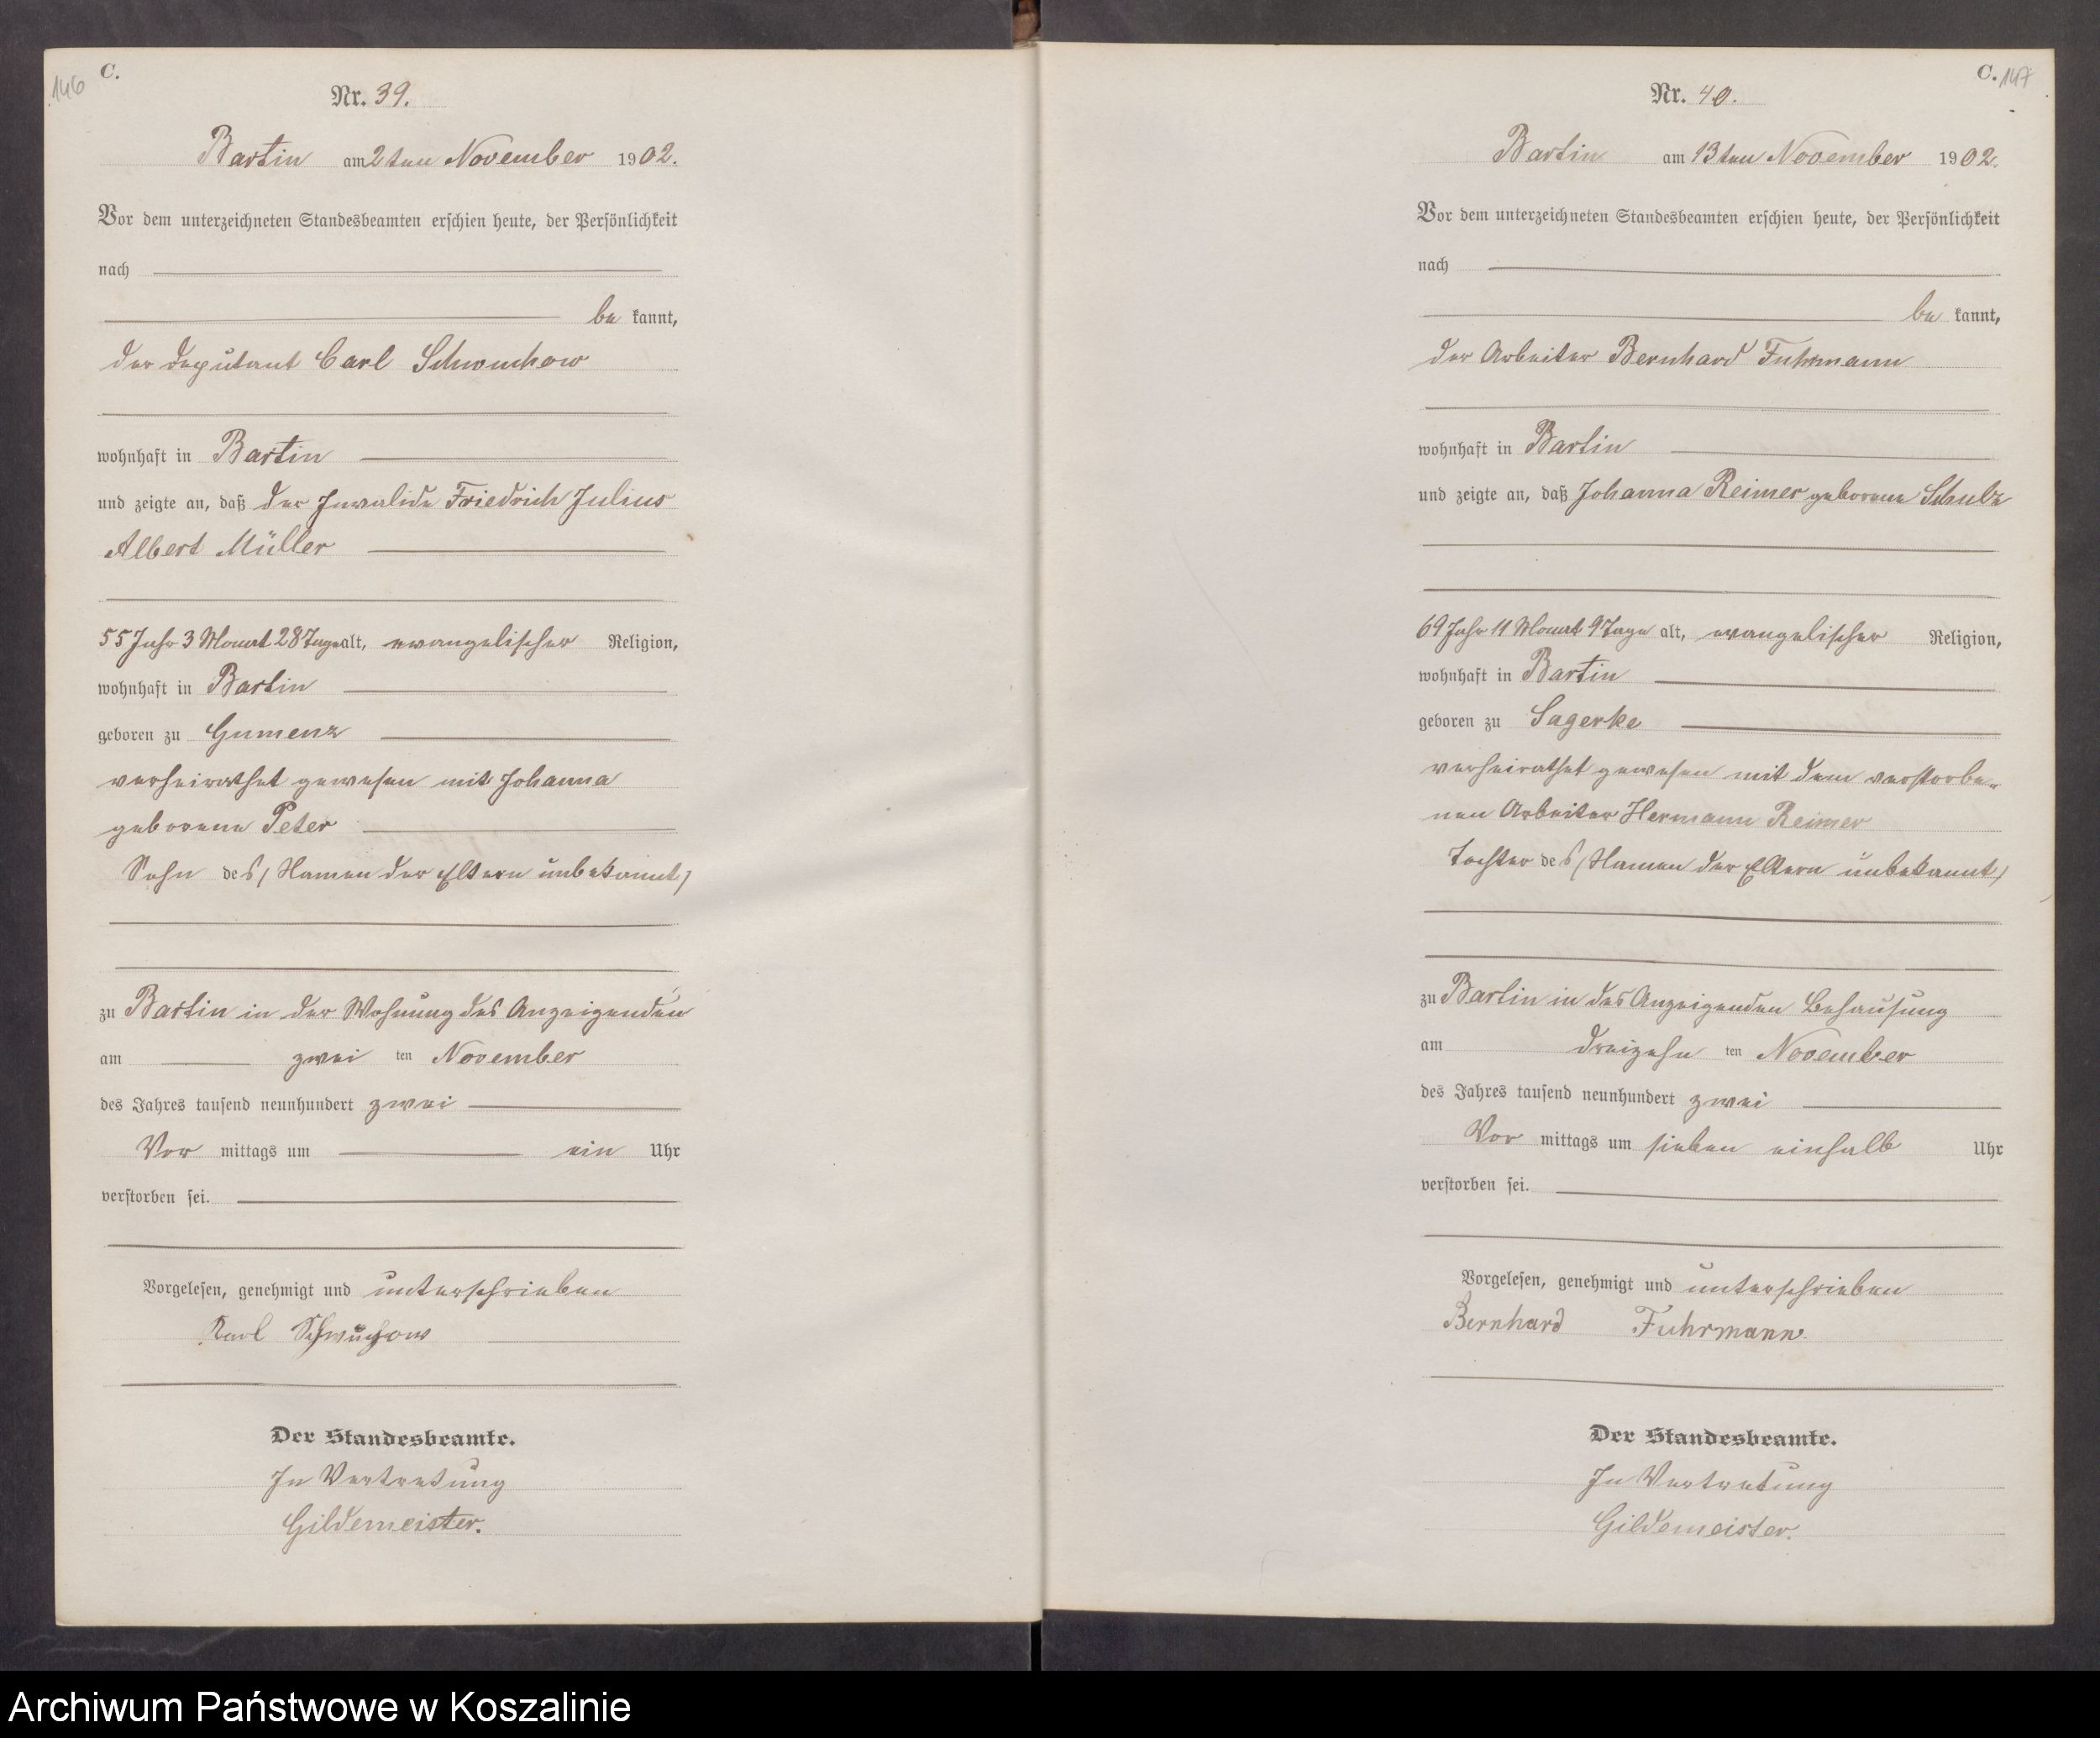 146
C.
Nr. 39.
Bartin am 2ten November 1902.
Vor dem unterzeichneten Standesbeamten erschien heute, der Persönlichkeit
nach
be kannt,
der Deputant Carl Schwuchow
wohnhaft in Bartin
und zeigte an, daß der Invalide Friedrich Julius
Albert Müller
55 Jahr 3 Monat 28 Tage alt, evangelischer Religion,
wohnhaft in Bartin
geboren zu Gumenz
verheirathet gewesen mit Johanna
geborene Peter
Sohn des (Namen der Eltern unbekannt)
zu Bartin in der Wohnung des Anzeigenden
am zwei ten November
des Jahres tausend neunhundert zwei
Vor mittags um ein Uhr
verstorben sei.
Vorgelesen, genehmigt und unterschrieben
Karl Schwuchow
Der Standesbeamte.
In Vertretung
Gildemeister.
C. 147
Nr. 40.
Bartin am 13ten November 1902.
Vor dem unterzeichneten Standesbeamten erschien heute, der Persönlichkeit
nach
be kannt,
der Arbeiter Bernhard Fuhrmann
wohnhaft in Bartin
und zeigte an, daß Johanna Reimer geborene Schulz
69 Jahr 11 Monat 9 Tage alt, evangelischer Religion,
wohnhaft in Bartin
geboren zu Sagerke
verheirathet gewesen mit dem verstorbe-
nen Arbeiter Hermann Reimer
Tochter des (Namen der Eltern unbekannt)
zu Bartin in des Anzeigenden Behausung
am dreizehn ten November
des Jahres tausend neunhundert zwei
Vor mittags um sieben einhalb Uhr
verstorben sei.
Vorgelesen, genehmigt und unterschrieben
Bernhard Fuhrmann.
Der Standesbeamte.
In Vertretung
Gildemeister.
Archiwum Państwowe w Koszalinie